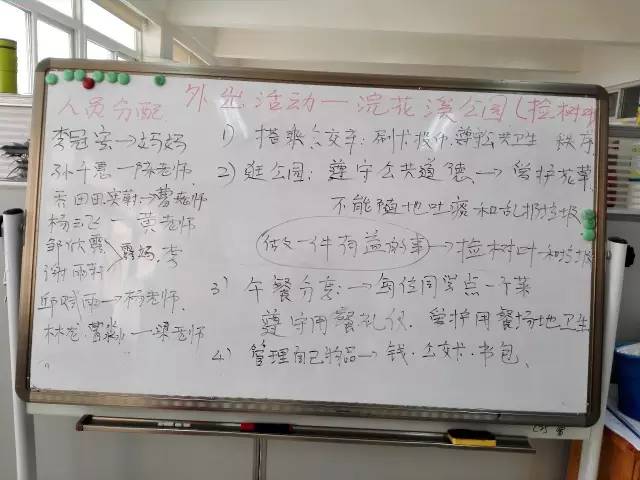 外出活动—浣花溪公园(捡树叶
人员分配
李冠宏→妈妈
孙千惠一陈老师
田田 → 曹老师
杨云飞一黄老师
邹欣露
谢雨 露妈.李
邱 雨→杨老师.
林 一梁老师
1) 搭乘公交车: 刷卡投币.尊 公共卫生 秩序
2) 逛公园: 遵守公共道德.→爱护花草,
不能随地吐痰和乱扔垃圾
做一件有益的事→捡树叶和垃圾
3) 午餐分享:→每位同学点一个菜
遵守用餐礼仪.爱护用餐场地卫生
4) 管理自己物品→钱.公交卡.书包、